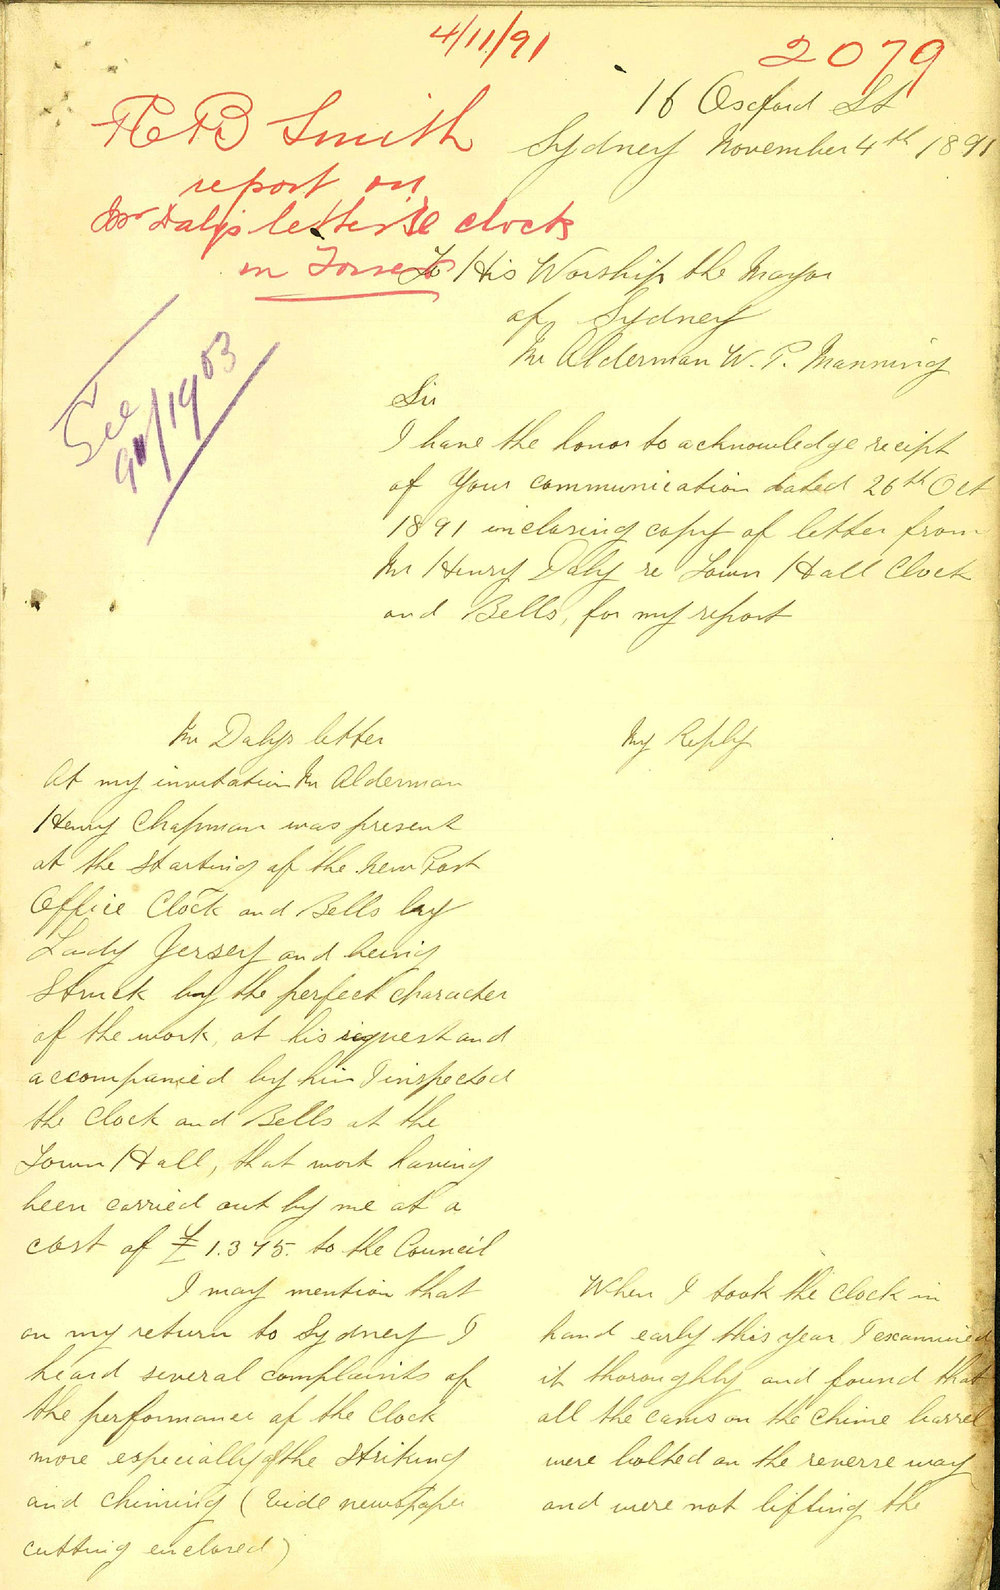 4/11/91
2079
Smith
report on
Mr Daly's letter re clock
in Tower
See
90/1903
16 Oxford St
Sydney November 4th 1891
To His Worship the Mayor
of Sydney
Mr Alderman W. P. Manning
Sir
I have the honor to acknowledge reciept
of Your communication dated 26th Oct
1891 inclosing copy of letter from
Mr Henry Daly re Town Hall Clock
and Bells, for my report
Mr Dalys letter
At my invitation Mr Alderman
Henry Chapman was present
at the starting of the New Post
Office Clock and Bells by
Lady Jersey and being
struck by the perfect character
of the work, at his request and
accompanied by him I inspected
the Clock and Bells at the
Town Hall, that work having
been carried out by me at a
cost of £1.375. to the Council
I may mention that
on my return to Sydney I
heard several complaints of
the performance of the Clock
more especially of the striking
and chiming (vide newspaper
cutting enclosed)
My Reply
When I took the Clock in
hand early this year I examined
it thoroughly and found that
all the cams on the chime barrel
were bolted on the reverse way
and were not lifting the